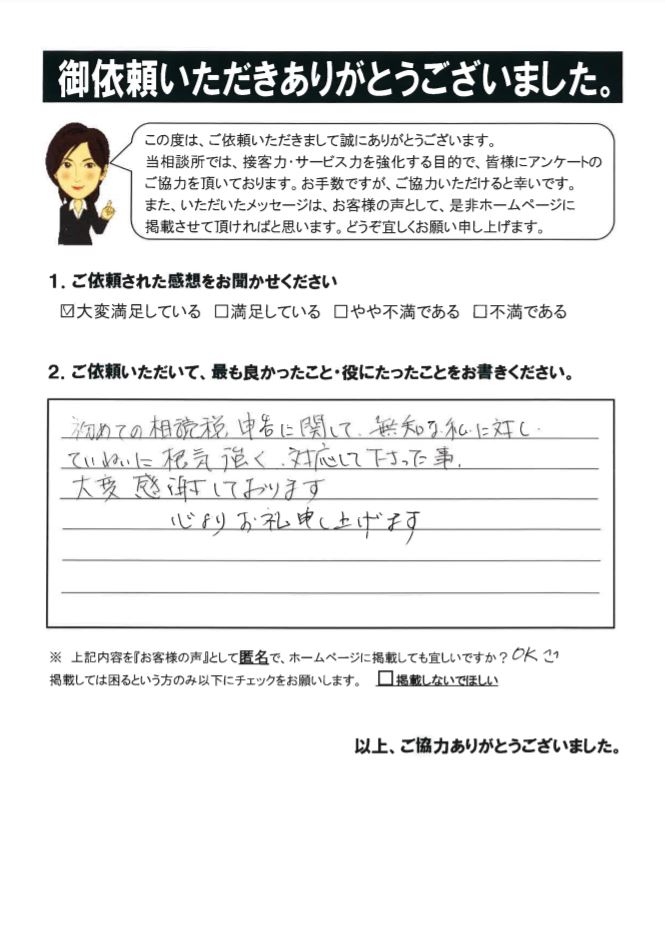 御依頼いただきありがとうございました。
この度は、ご依頼いただきまして誠にありがとうございます。
当相談所では、接客力・サービス力を強化する目的で、皆様にアンケートの
ご協力を頂いております。お手数ですが、ご協力いただけると幸いです。
また、いただいたメッセージは、お客様の声として、是非ホームページに
掲載させて頂ければと思います。どうぞ宜しくお願い申し上げます。
1. ご依頼された感想をお聞かせください
☑大変満足している □満足している □やや不満である □不満である
2. ご依頼いただいて、最も良かったこと・役にたったことをお書きください。
初めての相続税、申告に関して、無知な私に対し、
ていねいに根気強く、対応して下さった事、
大変感謝しております
心よりお礼申し上げます
※ 上記内容を『お客様の声』として匿名で、ホームページに掲載しても宜しいですか？OK
掲載しては困るという方のみ以下にチェックをお願いします。 □掲載しないでほしい
以上、ご協力ありがとうございました。